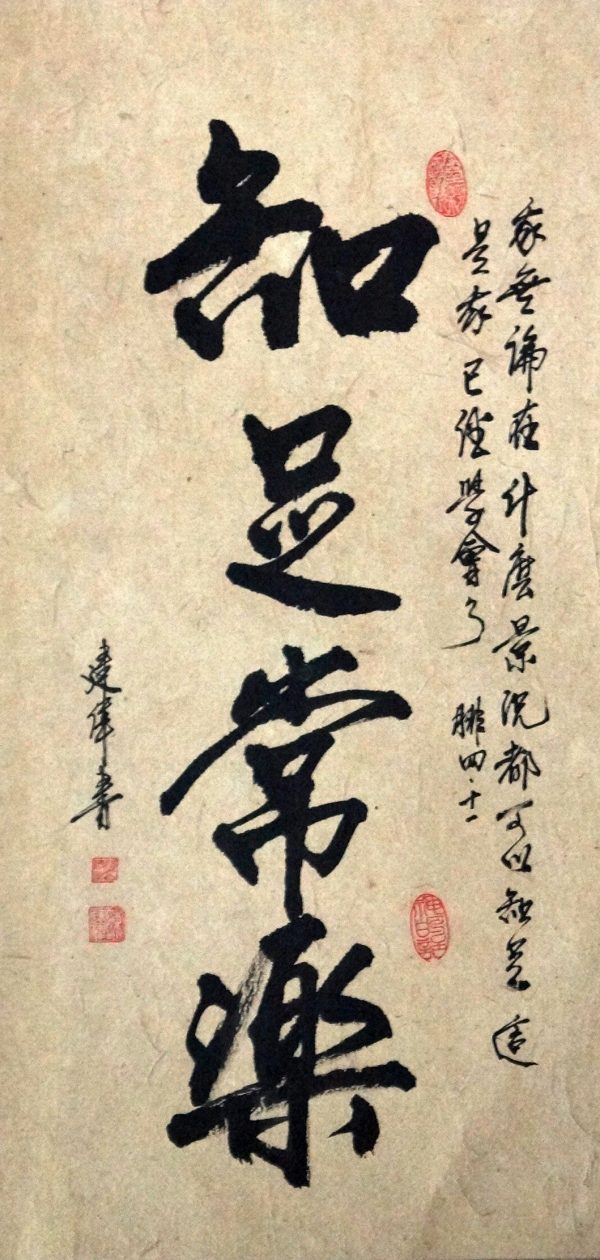 我無論在什麼景況都可以知足這
是我已經學會了 腓四·十一
知足常樂
建偉書